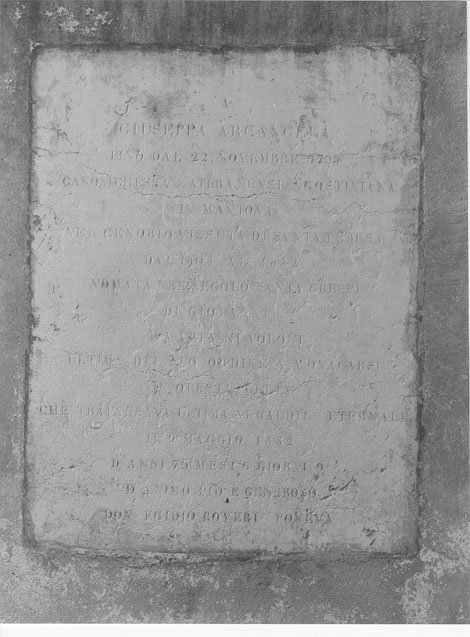 A
GIUSEPPA ARCANGELA
FINO DAL 22 NOVEMBRE 1795
CANONICHESSA LATERANENSE AGOSTINIANA
IN MANTOVA
NEL CENOBIO VISSUTA DI SANTA TERESA
DAL AL 1832
NOMATA NEL SECOLO SANTA CRESPI
DI GIOVANNI
E MARIA
ULTIMA DEL SUO ORDINE A MONACARSI
IN QUESTA
CHE TRAPASSAVA ULTIMA AI GAUDII ETERNALI
IL 9 MAGGIO 1832
D'ANNI 76 MESI 6 GIORNI 9
D'ANIMO PIO E GENEROSO
DON EGIDIO ROVERI PONEVA